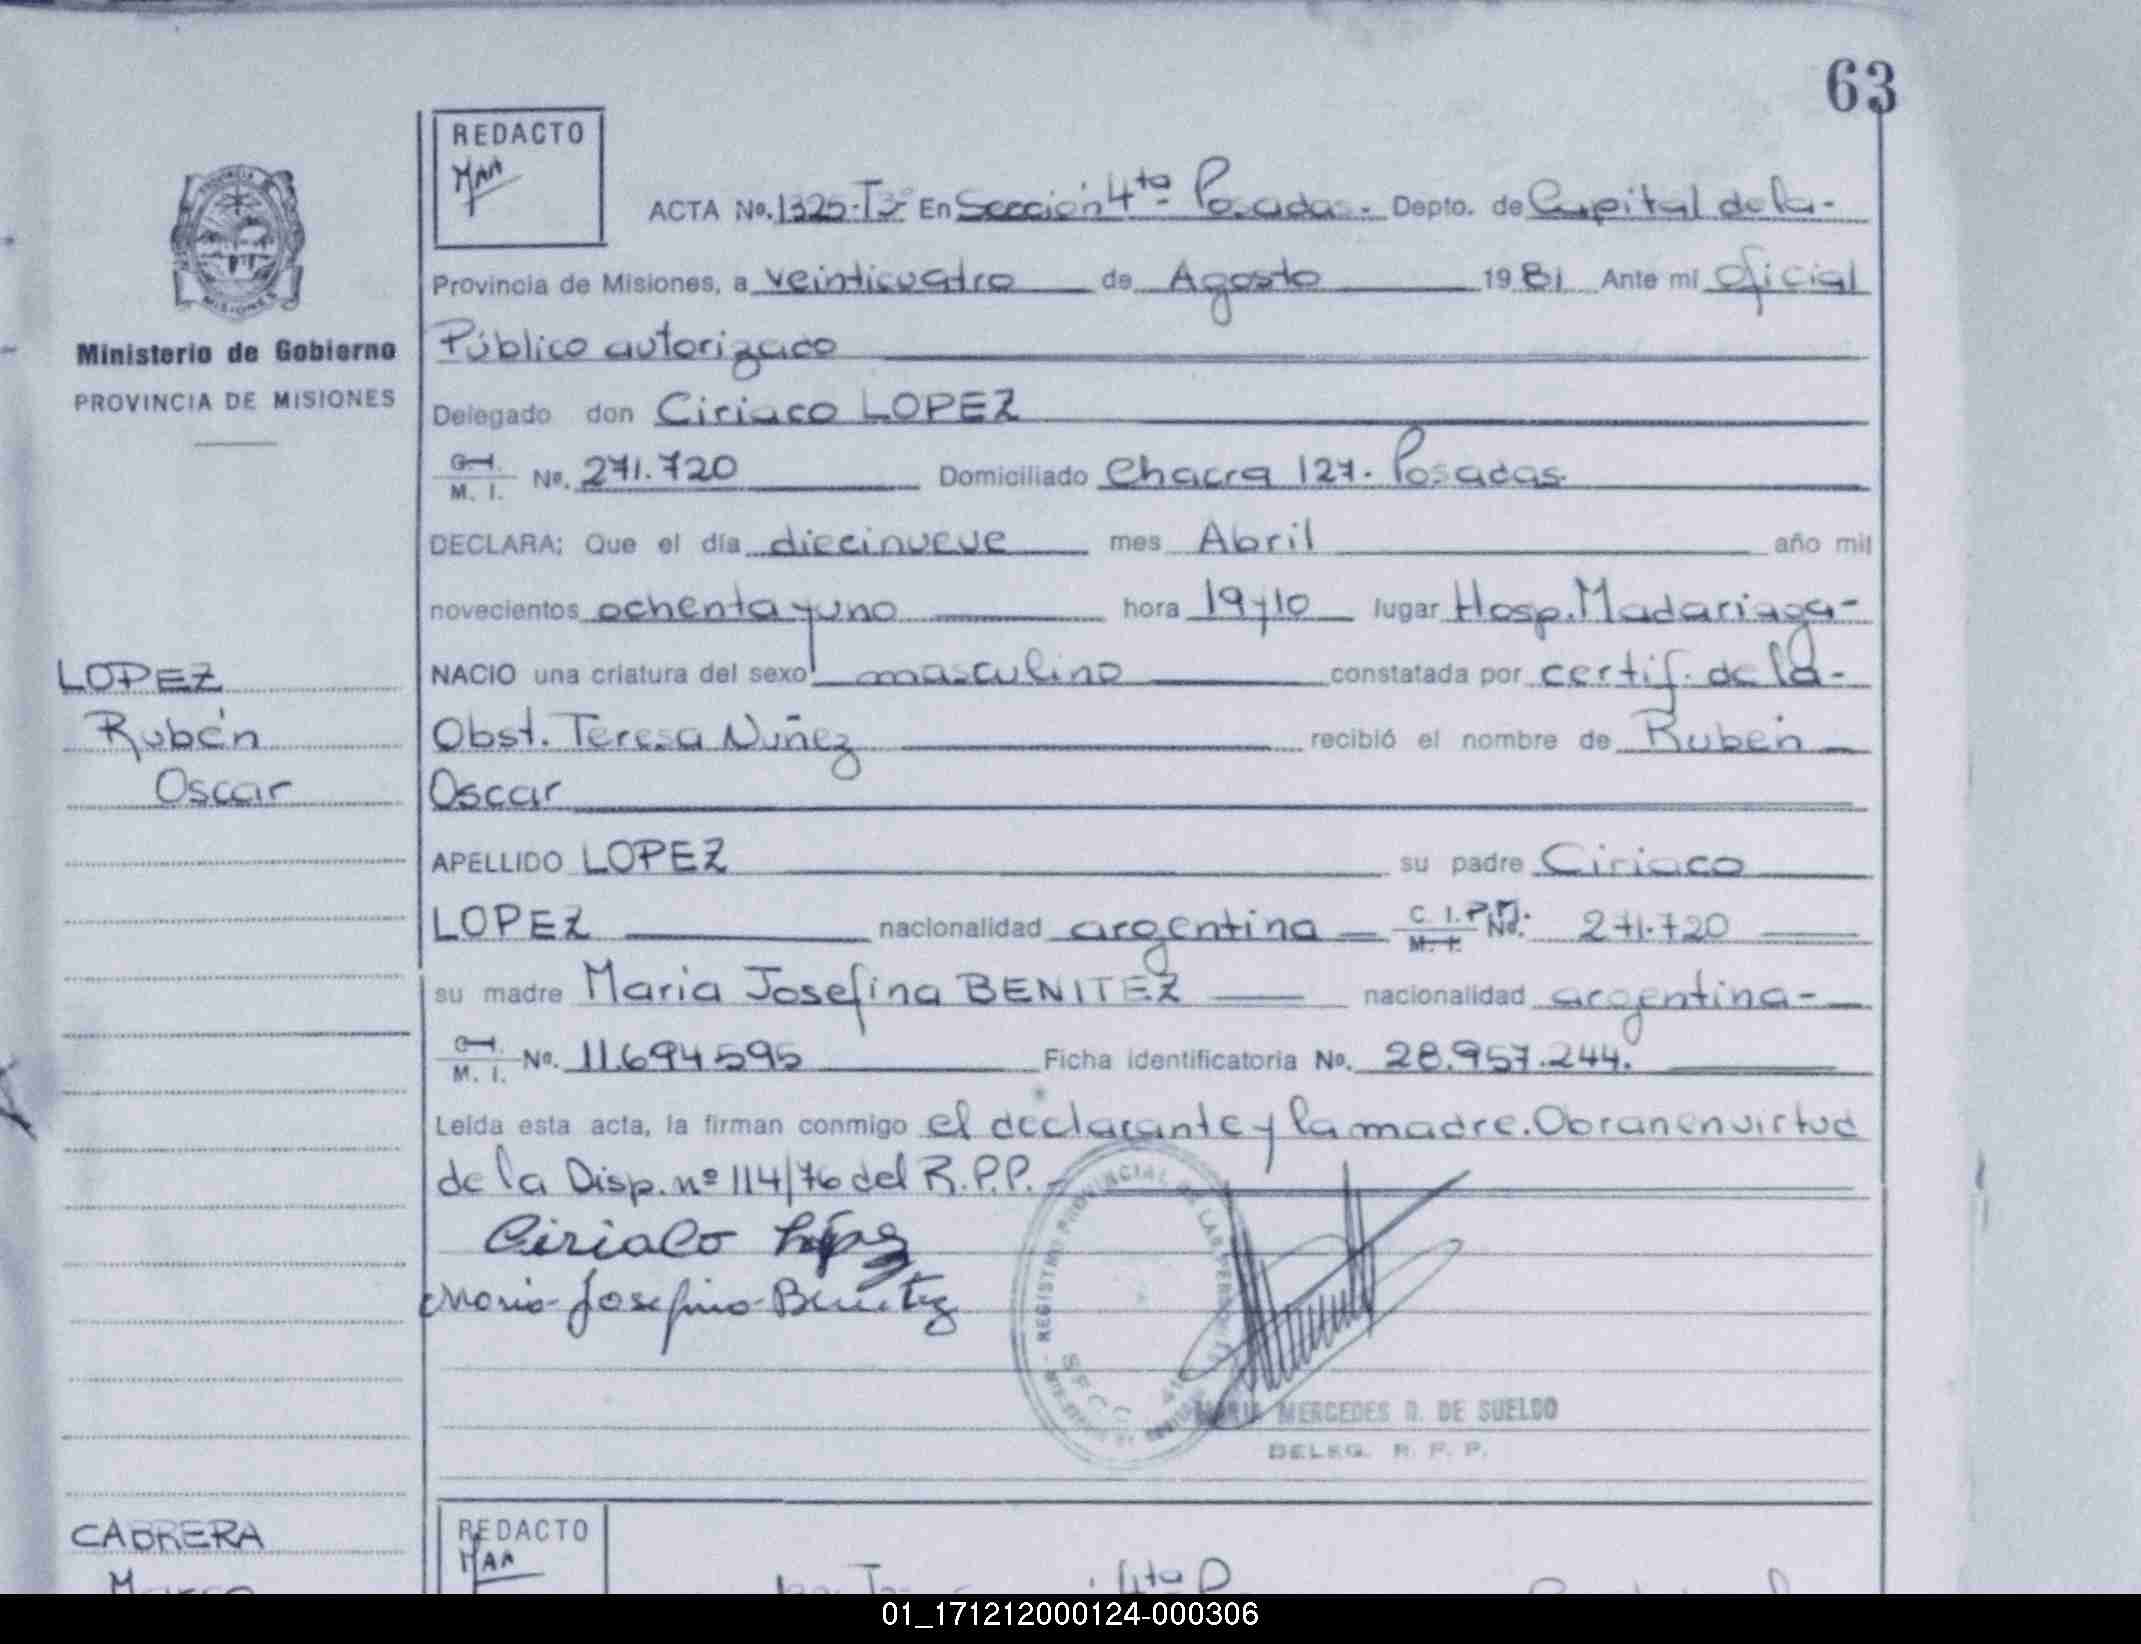 63
REDACTO
MAA
ACTA No. 1325-T3° En Sección 4ta Posadas.- Depto. de Capital de la-
Provincia de Misiones, a veinticuatro de Agosto 1981 Ante mi Oficial
Ministerio de Gobierno
PROVINCIA DE MISIONES
Público autorizado
Delegado don Ciriaco LOPEZ
C. I. M. I. No. 271.720 Domiciliado Chacra 127. Posadas.
DECLARA: Que el día diecinueve mes Abril año mil
novecientos ochenta y uno hora 19y10 lugar Hosp. Madariaga-
LOPEZ
Rubén
Oscar
NACIO una criatura del sexo masculino constatada por certif. de la-
Obst. Teresa Nuñez recibió el nombre de Rubén
Oscar
APELLIDO LOPEZ su padre Ciriaco
LOPEZ nacionalidad argentina C. I. P.M. M. I. No. 271.720
su madre Maria Josefina BENITEZ nacionalidad argentina-
C. I. M. I. No. 11.694.595 Ficha identificatoria No. 28.957.244.
Leída esta acta, la firman conmigo el declarante y la madre. Obran en virtud
de la Disp. nº 114/76 del R.P.P.
Ciriaco López
Maria Josefina Benitez
REGISTRO PROVINCIAL DE LAS PERSONAS
MERCEDES D. DE SUELDO
DELEG. R. P. P.
CABRERA
REDACTO
MAA
01_171212000124-000306